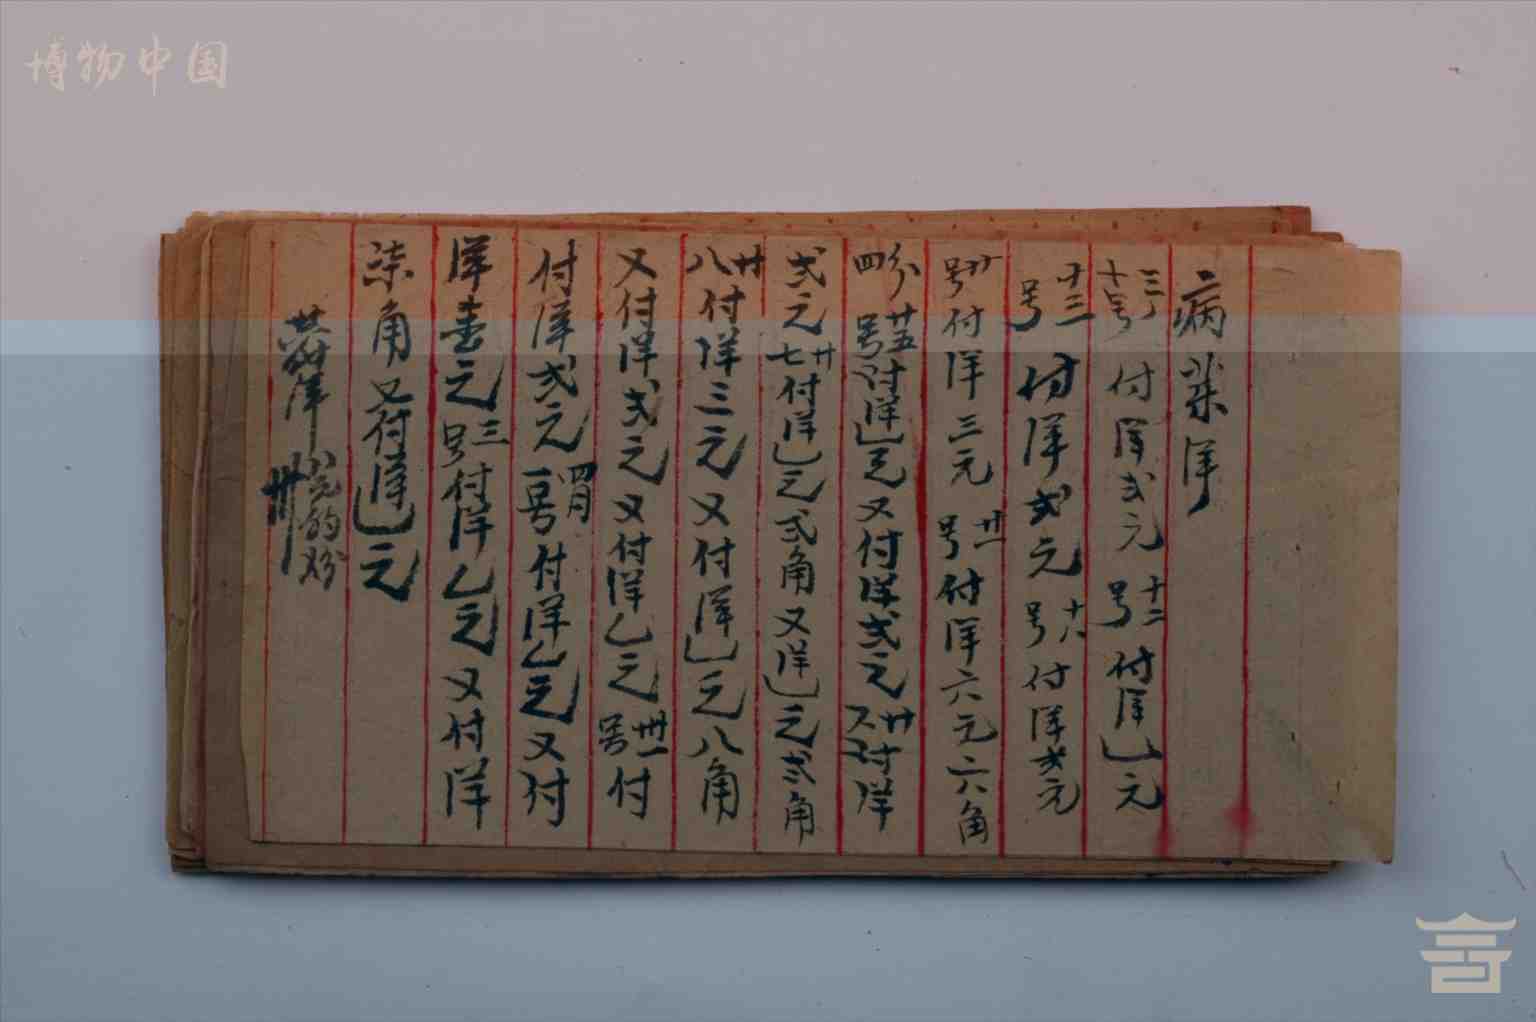 博物中国
病菜洋
三月十号付洋弍元十二号付洋乚元
十三号付洋弍元十六号付洋弍元
廿号付洋三元廿一号付洋六元六角
四分廿五号付洋乚元又付洋弍元廿六付洋
弍元廿七付洋乚元弍角又洋乚元弍角
廿八付洋三元又付洋乚元八角
又付洋弍元又付洋乚元卅一号付
付洋弍元四月一号付洋乚元又付
洋壹元三号付洋乚元又付洋
柒角又付洋乚元
共付洋